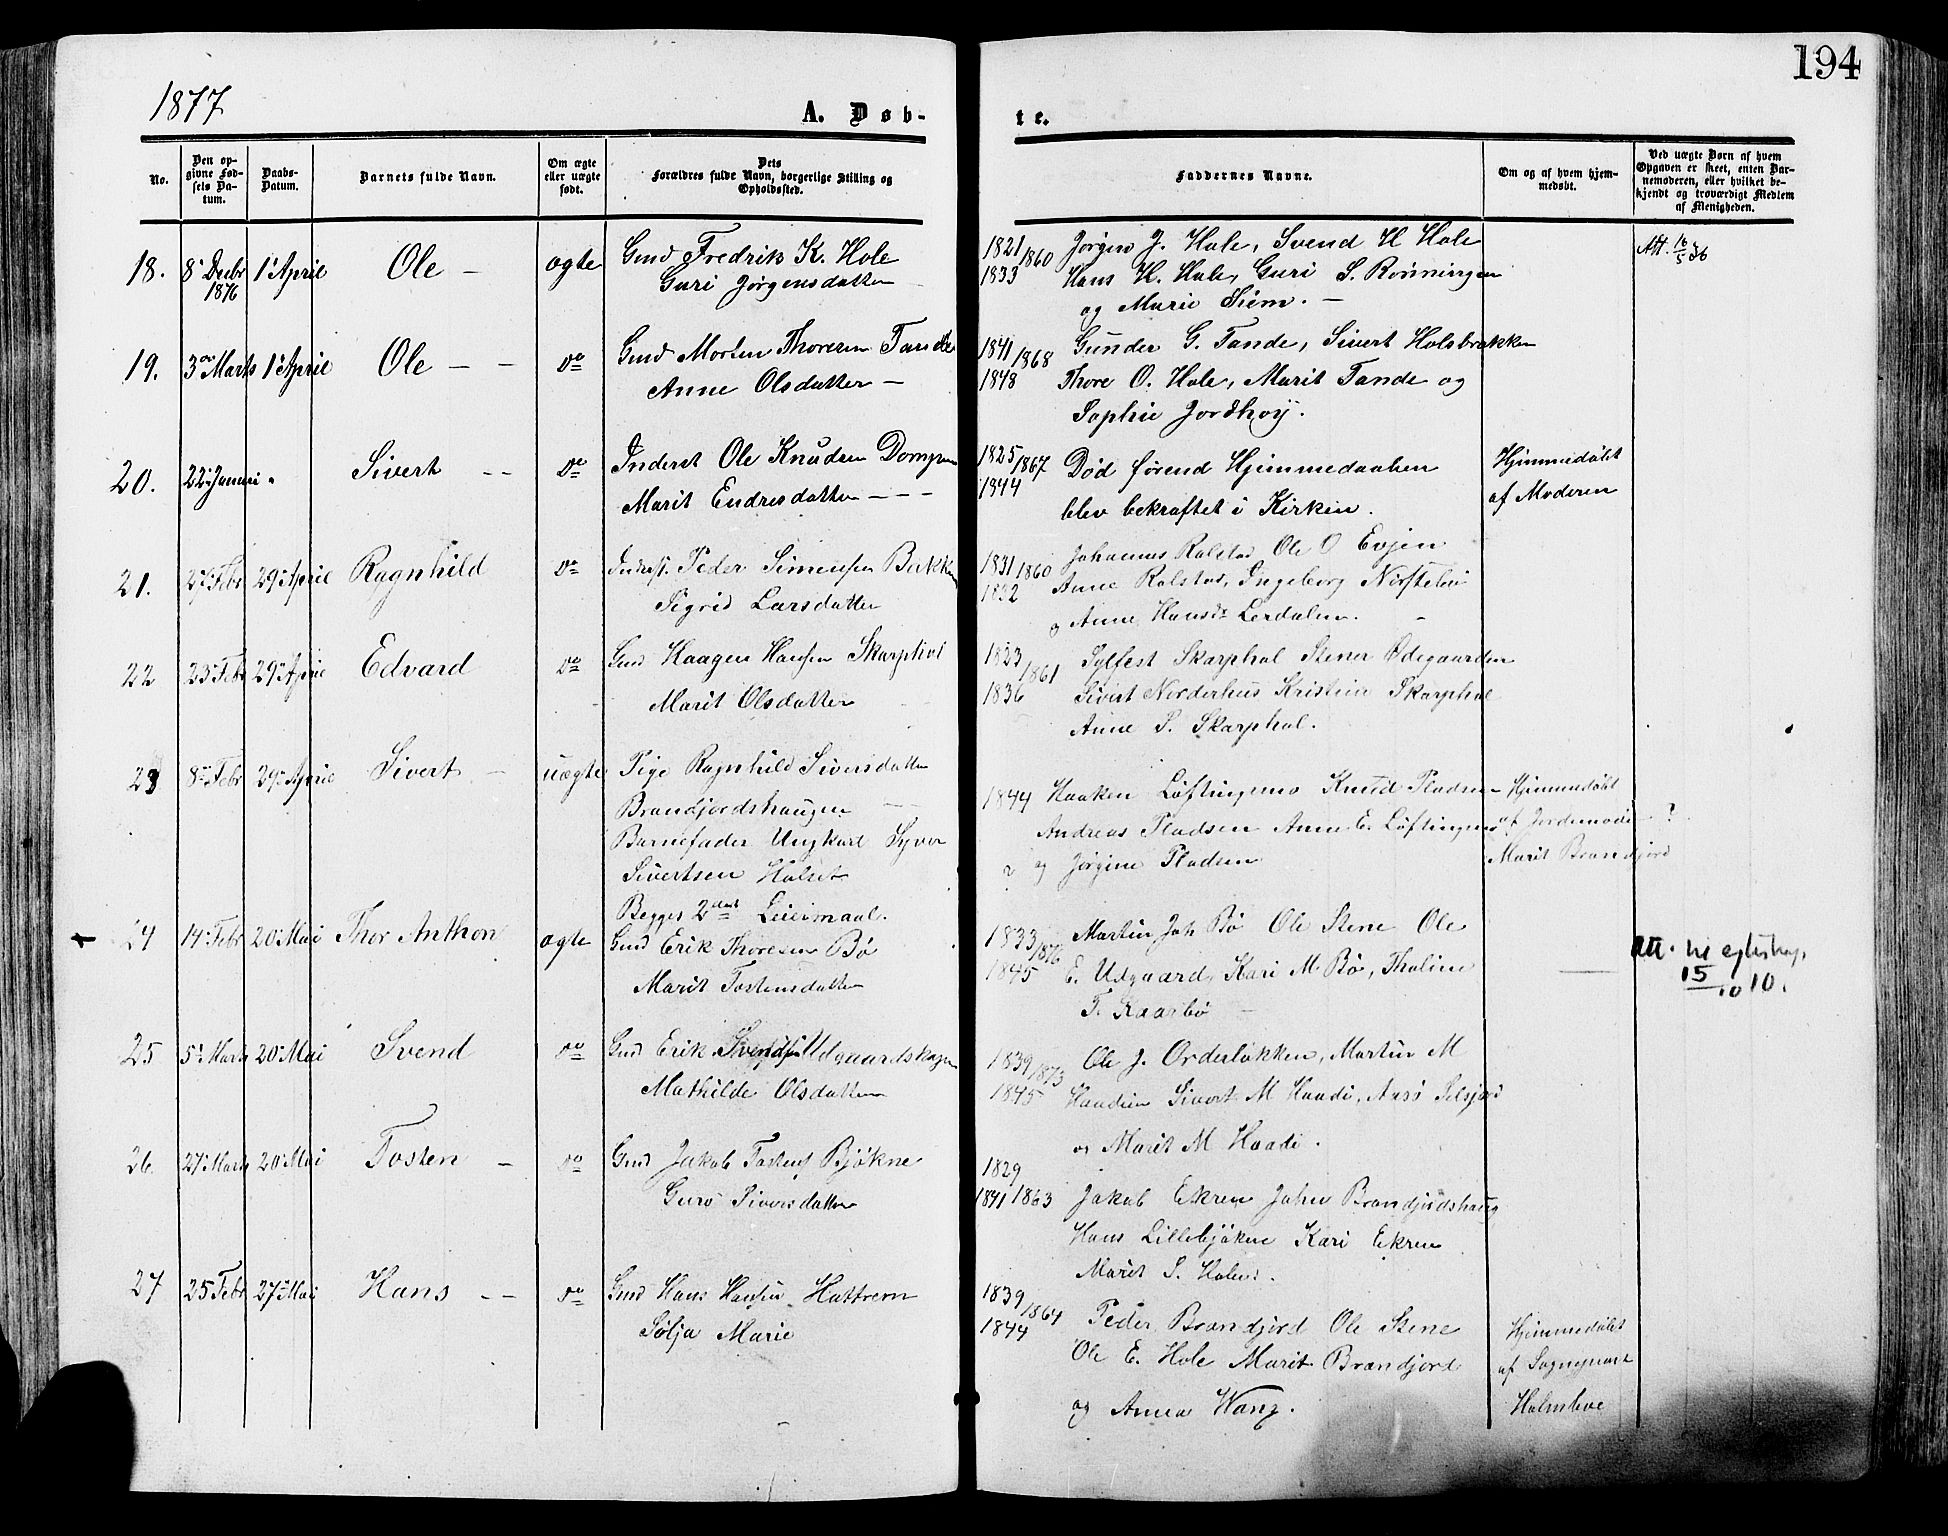 194
1877
A. Døb-
te.
No.
Den op-
givne Fød-
sels Da-
tum.
Daabs-
Datum.
Barnets fulde Navn.
Om ægte
eller uægte
født.
Dets
Forældres fulde Navn, borgerlige Stilling og
Opholdssted.
Faddernes Navne.
Om og af hvem hjem-
medøbt.
Ved uægte Børn af hvem
Opgaven er skeet, enten Bar-
nemoderen, eller hvilket be-
kjendt og troværdigt Medlem
af Menigheden.
18. 8 Decbr 1 April Ole — ægte Gmd Fredrik K. Hole
1876 Guri Jørgensdatter
1821 1860 Jørgen J. Hole, Svend H Hole
1833 Hans H. Hole, Guri S. Rønningen
og Marie Siem. —
Att. 16/5 36
19. 3 Marts 1 April Ole — — do Gmd Morten Thoresen Tande
Anne Olsdatter —
1841 1868 Gunder G. Tande, Sivert Holsbrekken
1848 Thore O. Hole, Marit Tande og
Sophie Jordhøy.
20. 22 Januar " Sivert — — do Inderst Ole Knudsen
Marit Endresdatter — — —
1825 1867 Død førend Hjemmedaaben
1844 blev bekræftet i Kirken.
Hjemmedøbt
af Moderen
21. 27 Febr 29 April Ragnhild do Inderst. Peder Simensen Bakken
Sigrid Larsdatter
1831 1860 Johannes Rolstad Ole O Evjen
1832 Anne Rolstad, Ingeborg
og Anne Hansdr Lerdalen.
22 23 Febr 29 April Edvard do Gmd Haagen Hansen
Marit Olsdatter
1823 1861 Sylfest Skarphol Stener Ødegaarden
1836 Sivert Norderhus Kristine Skarphol
Anne S. Skarphol.
23 8 Febr 29 April Sivert — uægte Pige Ragnhild Siversdatter
Brandjordshaugen — —
Barnefader Ungkarl Syver
Sivertsen Holset
Begges 2det Leiermaal.
1844 Haaken Løftingsmo Knud Pladsen
Andreas Pladsen Anne E. Løftingsmo
? og Jørgine Pladsen
Hjemmedøbt
af Jordemoder ?
Marit Brandjord
24 14 Febr 20 Mai Thor Anthon ægte Gmd Erik Thoresen Bø
Marit Tostensdatter
1833 1876 Martin Joh Bø Ole Stene Ole
1845 E. Udgaard, Kari M. Bø, Thaline
T. Kaarbø —
Att. til egteskap
15/10 10.
25 5 Marts 20 Mai Svend do Gmd Erik Svendsen Udgaardshagen
Mathilde Olsdatter
1839 1873 Ole J. Orderløkken, Martin M
1845 Haadien Sivert M Haadi,
og Marit M Haadi.
26. 27 Marts 20 Mai Tosten — do Gmd Jakob Tostens Bjøkne
Guro Siversdatter
1829
1841 1863 Jakob Ekren John Brandjordshaug
Hans Lillebjøkne Kari Ekren
Marit S.
27 25 Febr 27 Mai Hans — — do Gmd Hans Hansen Hattrem
Sølja Marie
1839 1864 Peder Brandjord Ole Stene
1844 Ole E. Hole Marit Brandjord
og Anna Wang.
Hjemmedøbt
af Sogneprest